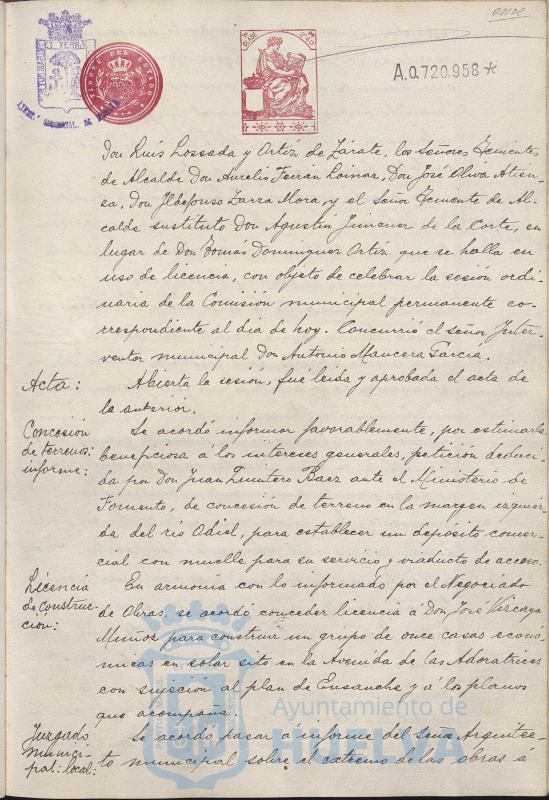 once
A.0.720.958*
TIMBRE DEL ESTADO
Don Luis Lossada y Ortiz de Zárate, los señores Tenientes
de Alcalde Don Aurelio Ferrán Loinaz, Don José Oliva Atien-
za, Don Ildefonso Zarza Mora, y el Señor Teniente de Al-
calde sustituto Don Agustin Jimenez de la Corte, en
lugar de Don Tomás Dominguez Ortiz que se halla en
uso de licencia, con objeto de celebrar la sesión ordi-
naria de la Comisión municipal permanente co-
rrespondiente al dia de hoy. Concurrió el señor Inter-
ventor municipal Don Antonio Mancera Garcia.
Acta: Abierta la sesión, fué leida y aprobada el acta de
la anterior.
Concesión Se acordó informar favorablemente, por estimarla
de terrenos: beneficiosa á los intereses generales, petición deduci-
informe: da por Don Juan Quintero Baez ante el Ministerio de
Fomento, de concesión de terreno en la margen izquier-
da del rio Odiel, para establecer un depósito comer-
cial con muelle para su servicio y viaducto de acceso.
Licencia En armonia con lo informado por el Negociado
de Construc- de Obras, se acordó conceder licencia á Don José Vizcaya
ción: Muñoz para construir un grupo de once casas econó-
micas en solar sito en la Avenida de las Adoratrices
con sujeción al plan de Ensanche y á los planos
que acompaña.
Juzgado Se acordó pasar á informe del Señor Arquitec-
munici- to municipal sobre el extremo de las obras á
pal: local:
Ayuntamiento de
HUELVA